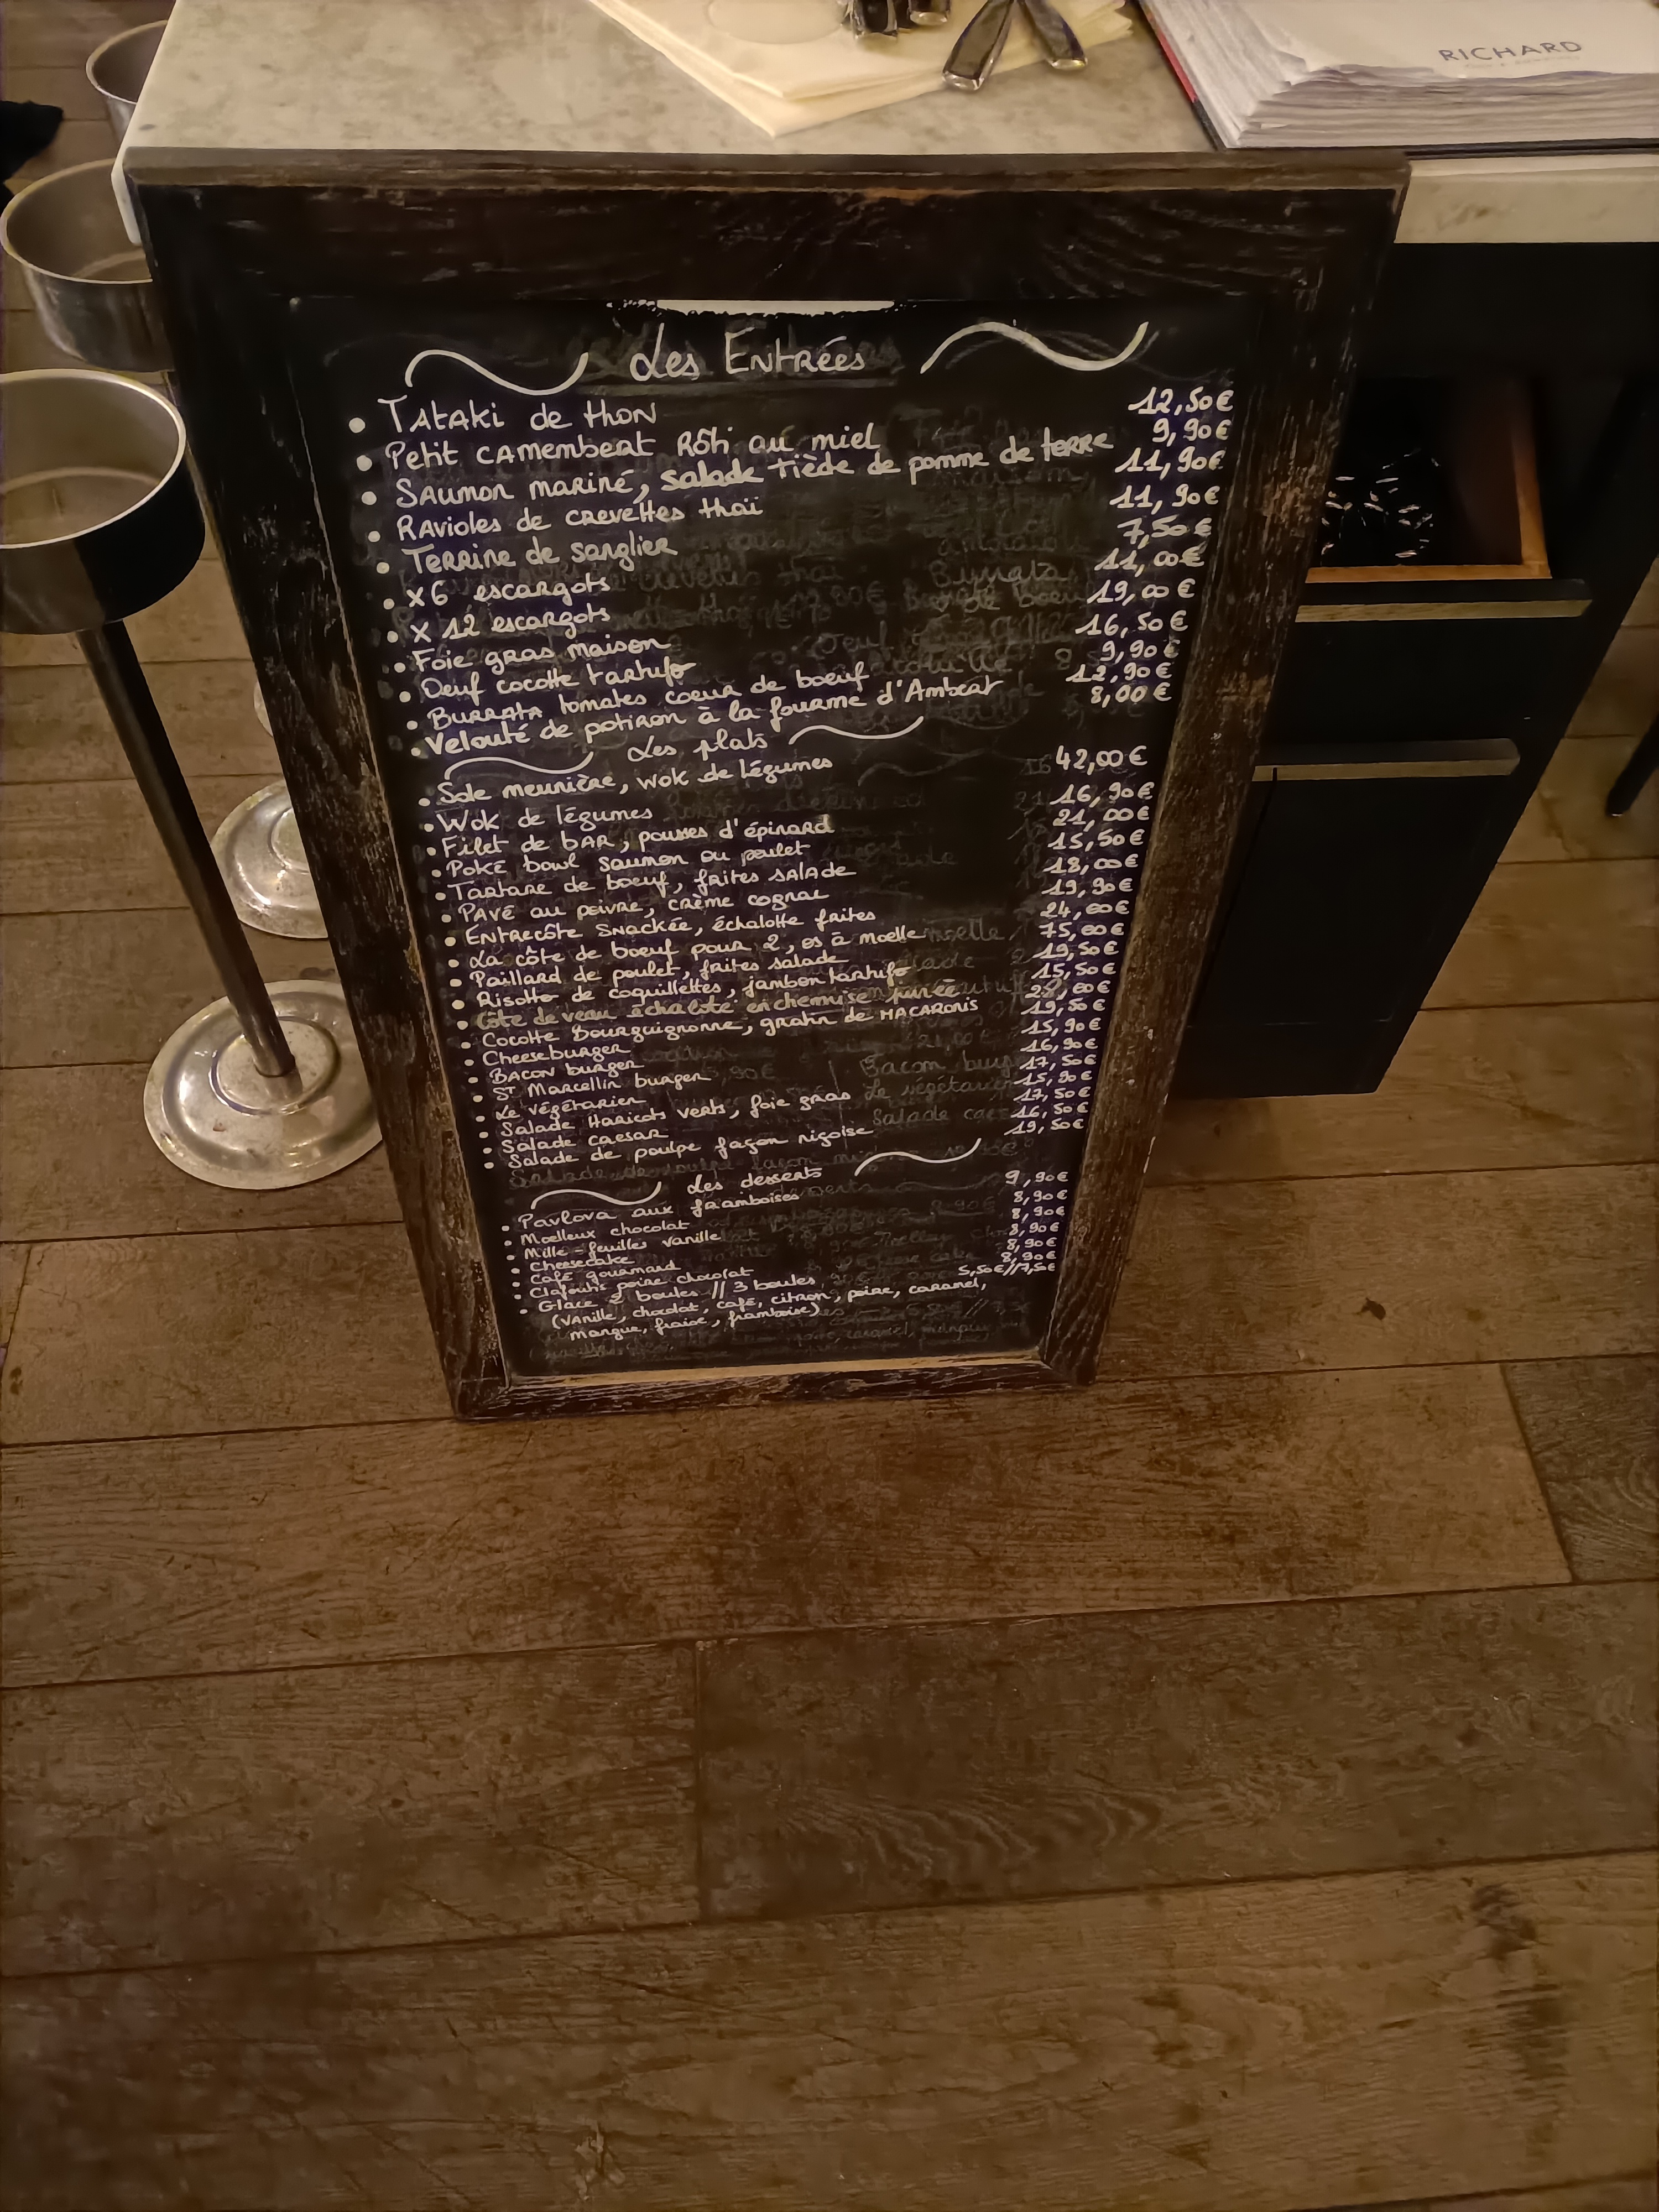 RICHARD
Les Entrées
• Tataki de thon 12,50€
• Petit camembert Rôti au miel 9,90€
• Saumon mariné, salade tiède de pomme de terre 11,90€
• Ravioles de crevettes thaï 11,90€
• Terrine de sanglier 7,50€
• x6 escargots 11,00€
• x 12 escargots 19,00€
• Foie gras maison 16,50€
• Oeuf cocotte tartufo 9,90€
• Burrata tomates coeur de boeuf 12,90€
• Velouté de potiron à la fourme d'Ambert 8,00€
Les plats
• Sole meunière, wok de légumes 42,00€
• Wok de légumes 16,90€
• Filet de bar, pousses d'épinard 21,00€
• Poké bowl saumon ou poulet 15,50€
• Tartare de boeuf, frites salade 18,00€
• Pavé au poivre, crème cognac 19,90€
• Entrecôte snackée, échalotte frites 24,00€
• La côte de boeuf pour 2, os à moelle 75,00€
• Paillard de poulet, frites salade 19,50€
• Risotto de coquillettes, jambon tartufo 15,50€
• Côte de veau échalote en chemise purée
• Cocotte Bourguignonne, gratin de macaronis 19,50€
• Cheeseburger 15,90€
• Bacon burger 16,90€
• St Marcellin burger 17,50€
• Le végétarien 15,90€
• Salade Haricots verts, foie gras 17,50€
• Salade caesar 16,50€
• Salade de poulpe façon niçoise 19,50€
Les desserts
• Pavlova aux framboises 9,90€
• Moelleux chocolat 8,90€
• Mille-feuilles vanille 8,90€
• Cheesecake 8,90€
• Café gourmand 8,90€
• Clafoutis poire chocolat 8,90€
• Glace 2 boules // 3 boules 5,50€//7,5€
(vanille, chocolat, café, citron, poire, caramel,
mangue, fraise, framboise)